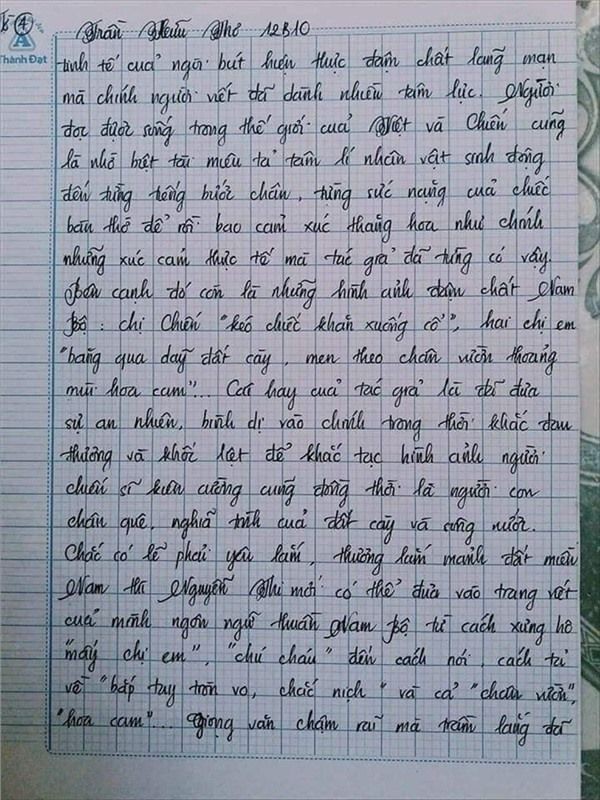 ④
Thành Đạt
Trần Hữu Thơ 12B10
tinh tế của ngòi bút hiện thực đậm chất lãng mạn
mà chính người viết đã dành nhiều tâm lực. Người
đọc được sống trong thế giới của Việt và Chiến cũng
là nhờ biệt tài miêu tả tâm lí nhân vật sinh động
đến từng tiếng bước chân, từng sức nặng của chiếc
bàn thờ để rồi bao cảm xúc thăng hoa như chính
những xúc cảm thực tế mà tác giả đã từng có vậy.
Bên cạnh đó còn là những hình ảnh đậm chất Nam
Bộ: chị Chiến "kéo chiếc khăn xuống cổ", hai chị em
"băng qua dãy đất cày, men theo chân vườn thoảng
mùi hoa cam"... Cái hay của tác giả là đã đưa
sự an nhiên, bình dị vào chính trong thời khắc đau
thương và khốc liệt để khắc tạc hình ảnh người
chiến sĩ kiên cường cũng đồng thời là người con
chân quê, nghĩa tình của đất cày và ruộng nước.
Chắc có lẽ phải yêu lắm, thương lắm mảnh đất miền
Nam thì Nguyễn Thi mới có thể đưa vào trang viết
của mình ngôn ngữ thuần Nam Bộ từ cách xưng hô
"mấy chị em", "chú cháu" đến cách nói, cách tả
về "bắp tay tròn vo, chắc nịch" và cả "chân vườn",
"hoa cam"... Giọng văn chậm rãi mà trầm lắng đã